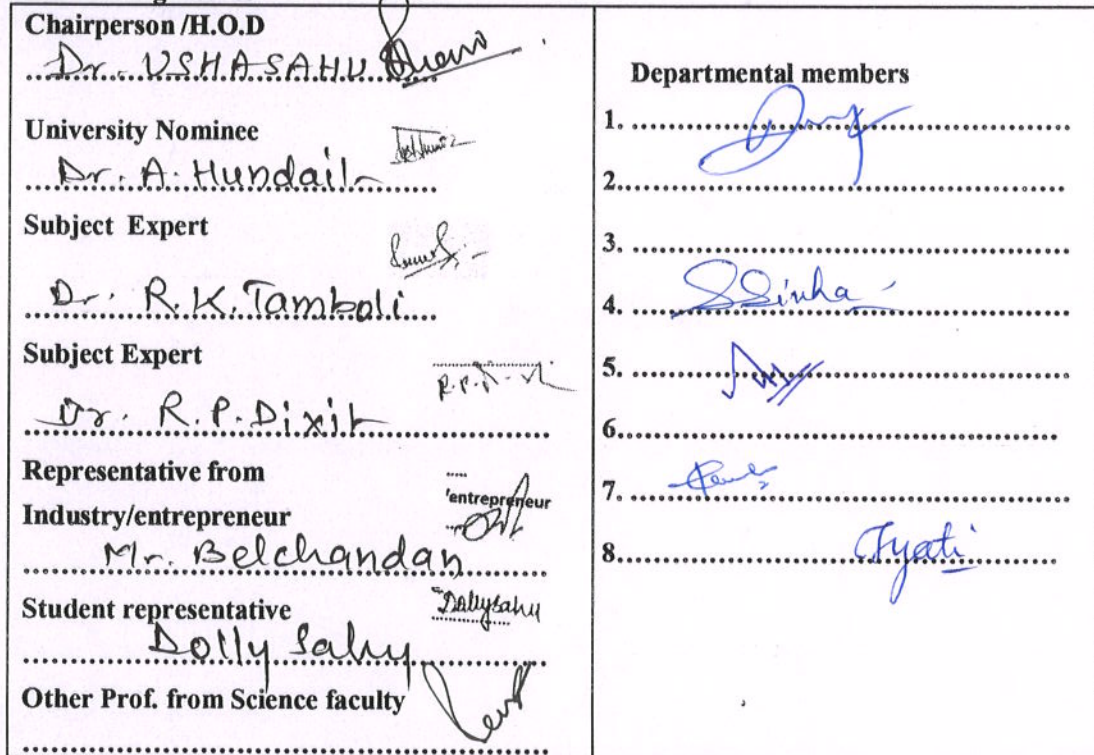 Chairperson /H.O.D
Dr. USHA SAHU
University Nominee
Dr. A. Hundail
Subject Expert
Dr. R.K. Tamboli
Subject Expert
R.P.
Dr. R.P. Dixit
Representative from
'entrepreneur
Industry/entrepreneur
Mr. Belchandan
Student representative
Dolly Sahu
Dolly Sahu
Other Prof. from Science faculty
Departmental members
1.
2.
3.
4. SSinha
5.
6.
7.
8. Jyoti